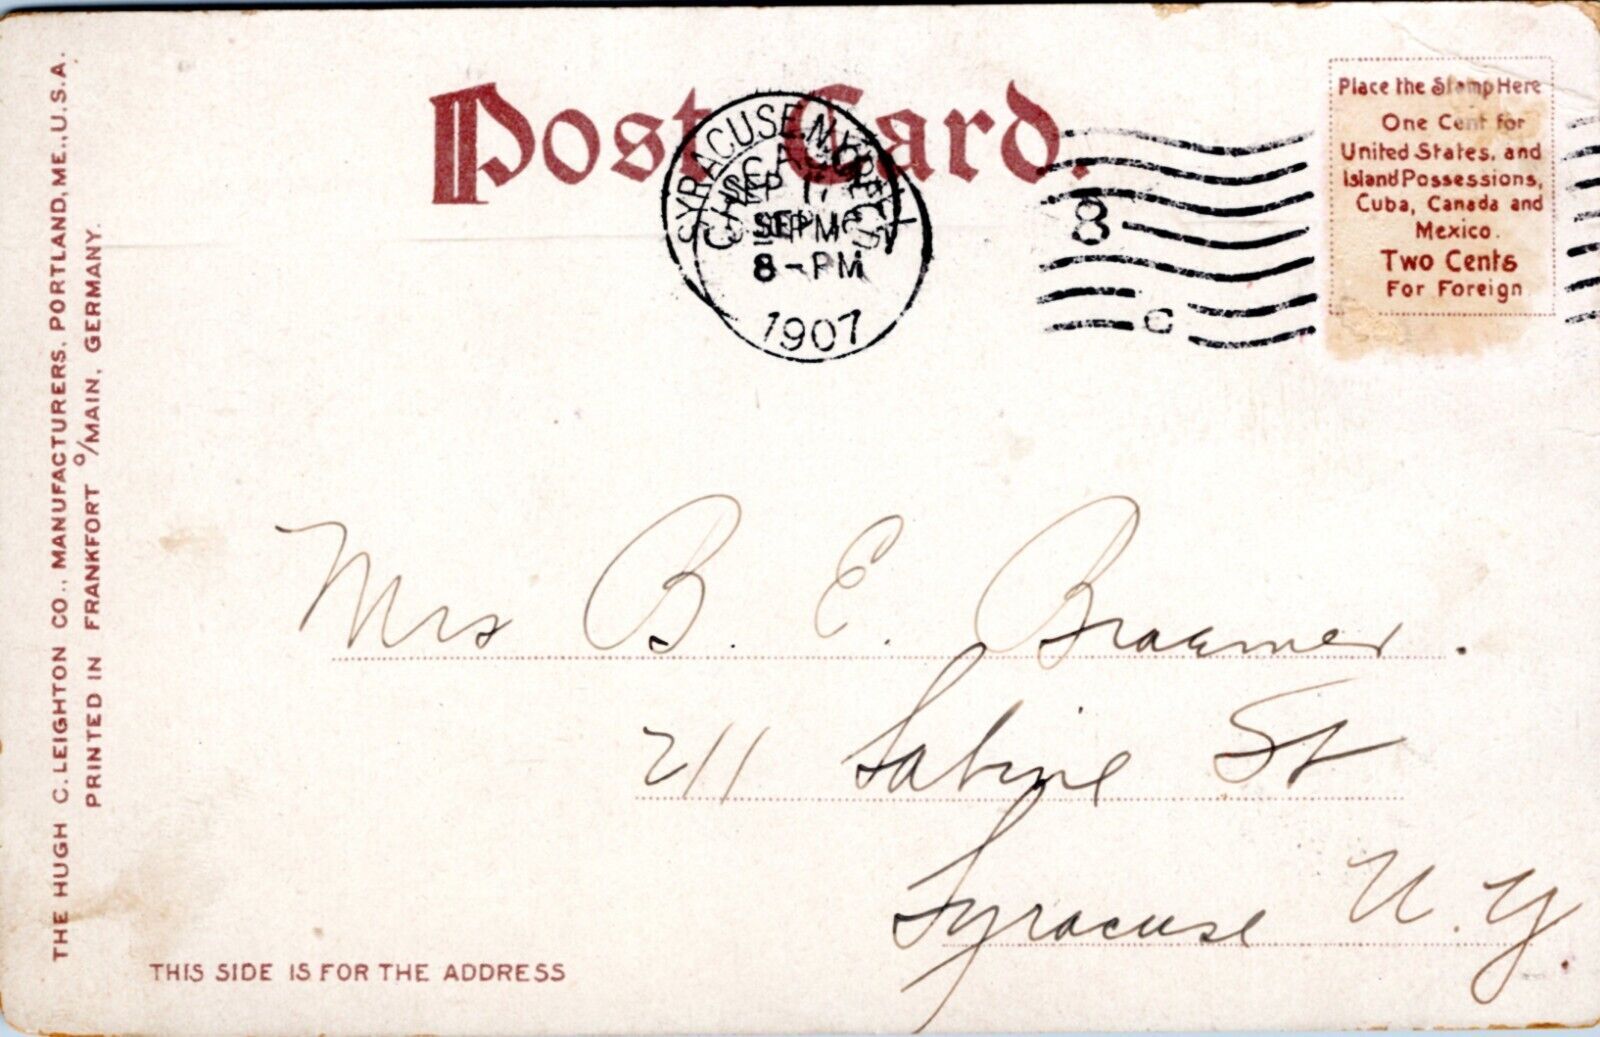 Post Card.
SYRACUSE, N.Y.
SEP 17
8-PM
1907
8
C
Place the Stamp Here
One Cent for
United States, and
Island Possessions,
Cuba, Canada and
Mexico.
Two Cents
For Foreign
THE HUGH C. LEIGHTON CO., MANUFACTURERS, PORTLAND, ME., U.S.A.
PRINTED IN FRANKFORT o/MAIN, GERMANY.
Mrs B. E. Braemer.
211 Sabine St
Syracuse N.Y.
THIS SIDE IS FOR THE ADDRESS